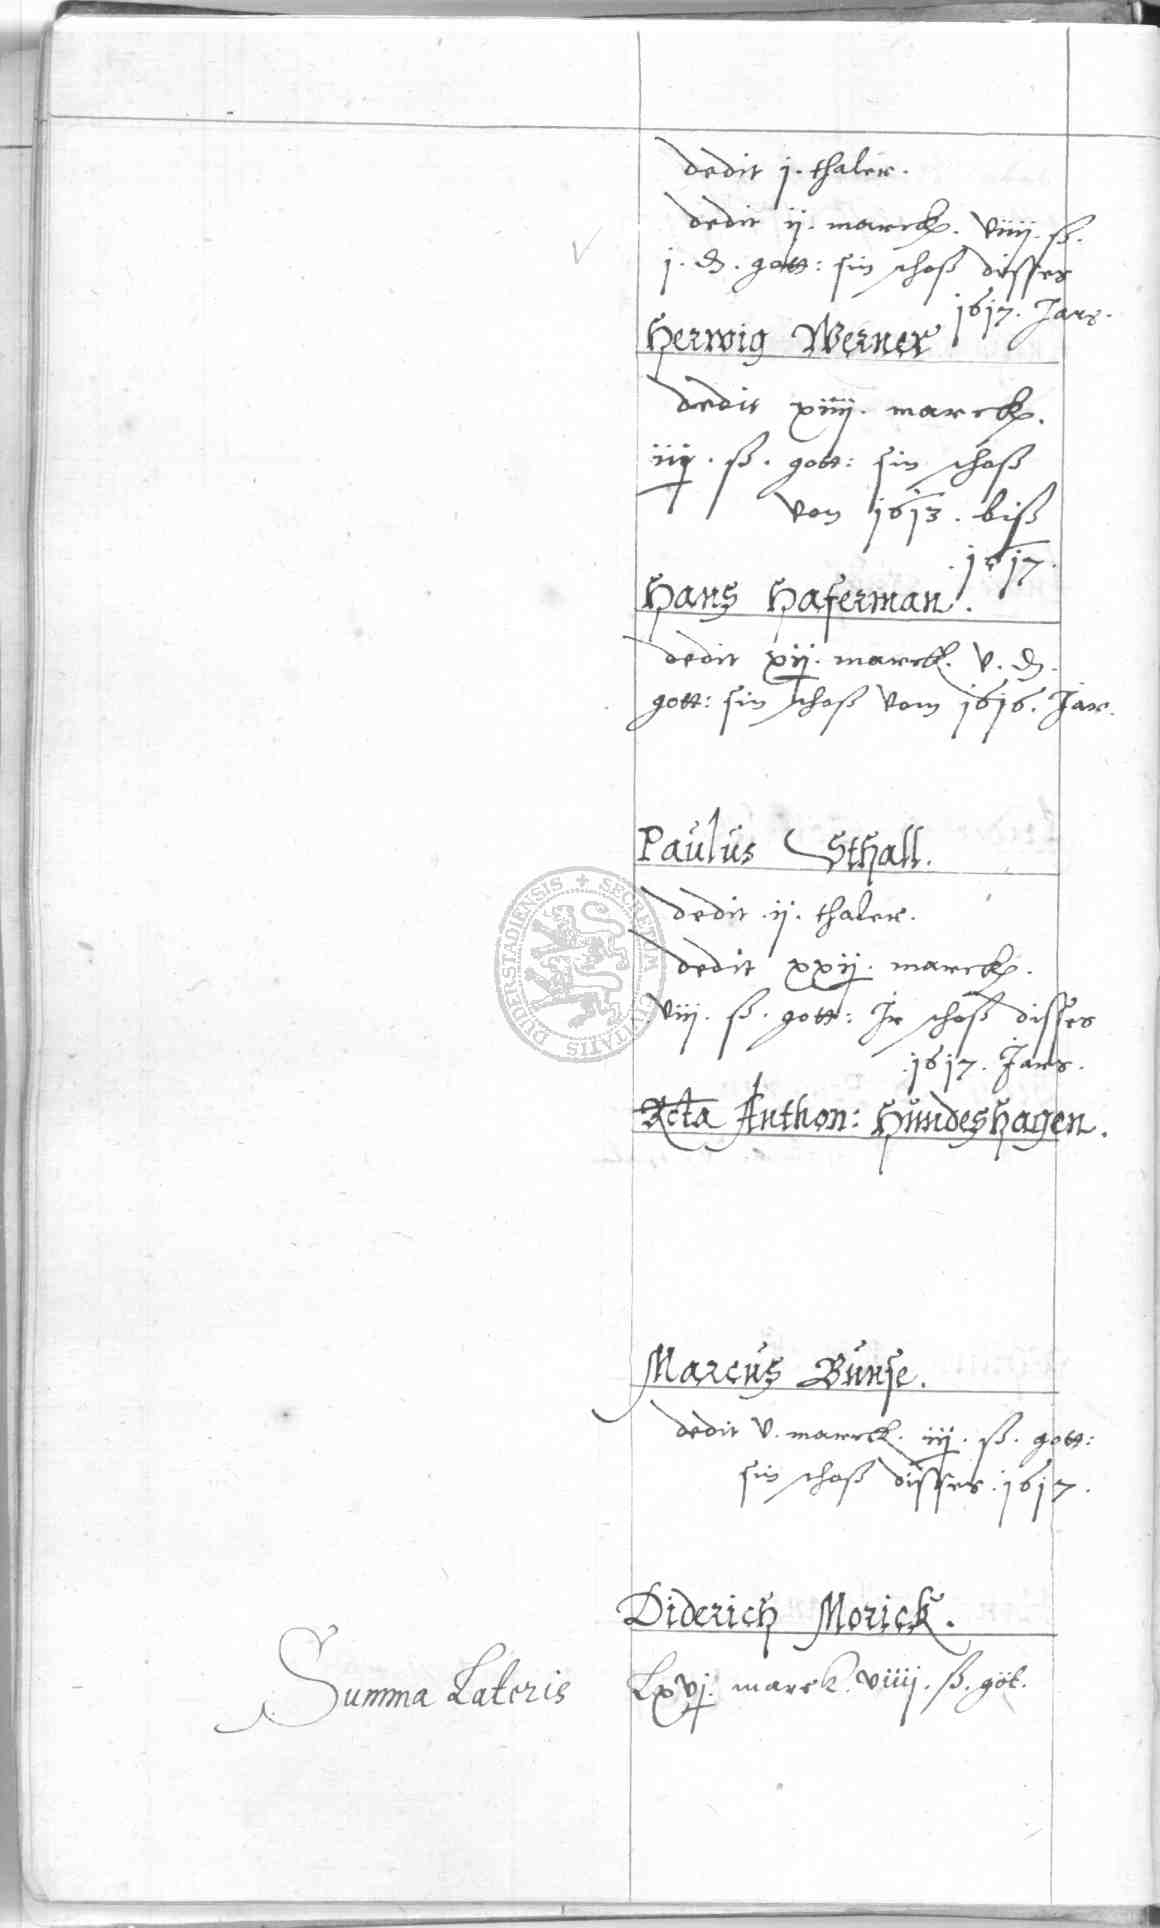 dedit j. thaler.
dedit ij. marck. viiij. ß.
j. d. gott: sin schoß disses
1617. Jars.
Herwig Werner
dedit xiiij. marck.
iiij. ß. gott: sin schoß
von 1613. biß
1617.
Hans Haferman.
dedit xij. marck. v. d.
gott: sin schoß vom 1616. Jar.
Paulus Sthall.
dedit ij. thaler.
dedit xxij. marck.
viij. ß. gott: Ir schoß disses
1617. Jars.
Relicta Anthon: Hundeshagen.
Marcus Bunse.
dedit v. marck. iiij. ß. gott:
sin schoß disses. 1617.
Diderich Morick.
Summa Lateris Lxvj. marck. viiij. ß. göt.
SECRETUM CIVITATIS DUDERSTADIENSIS